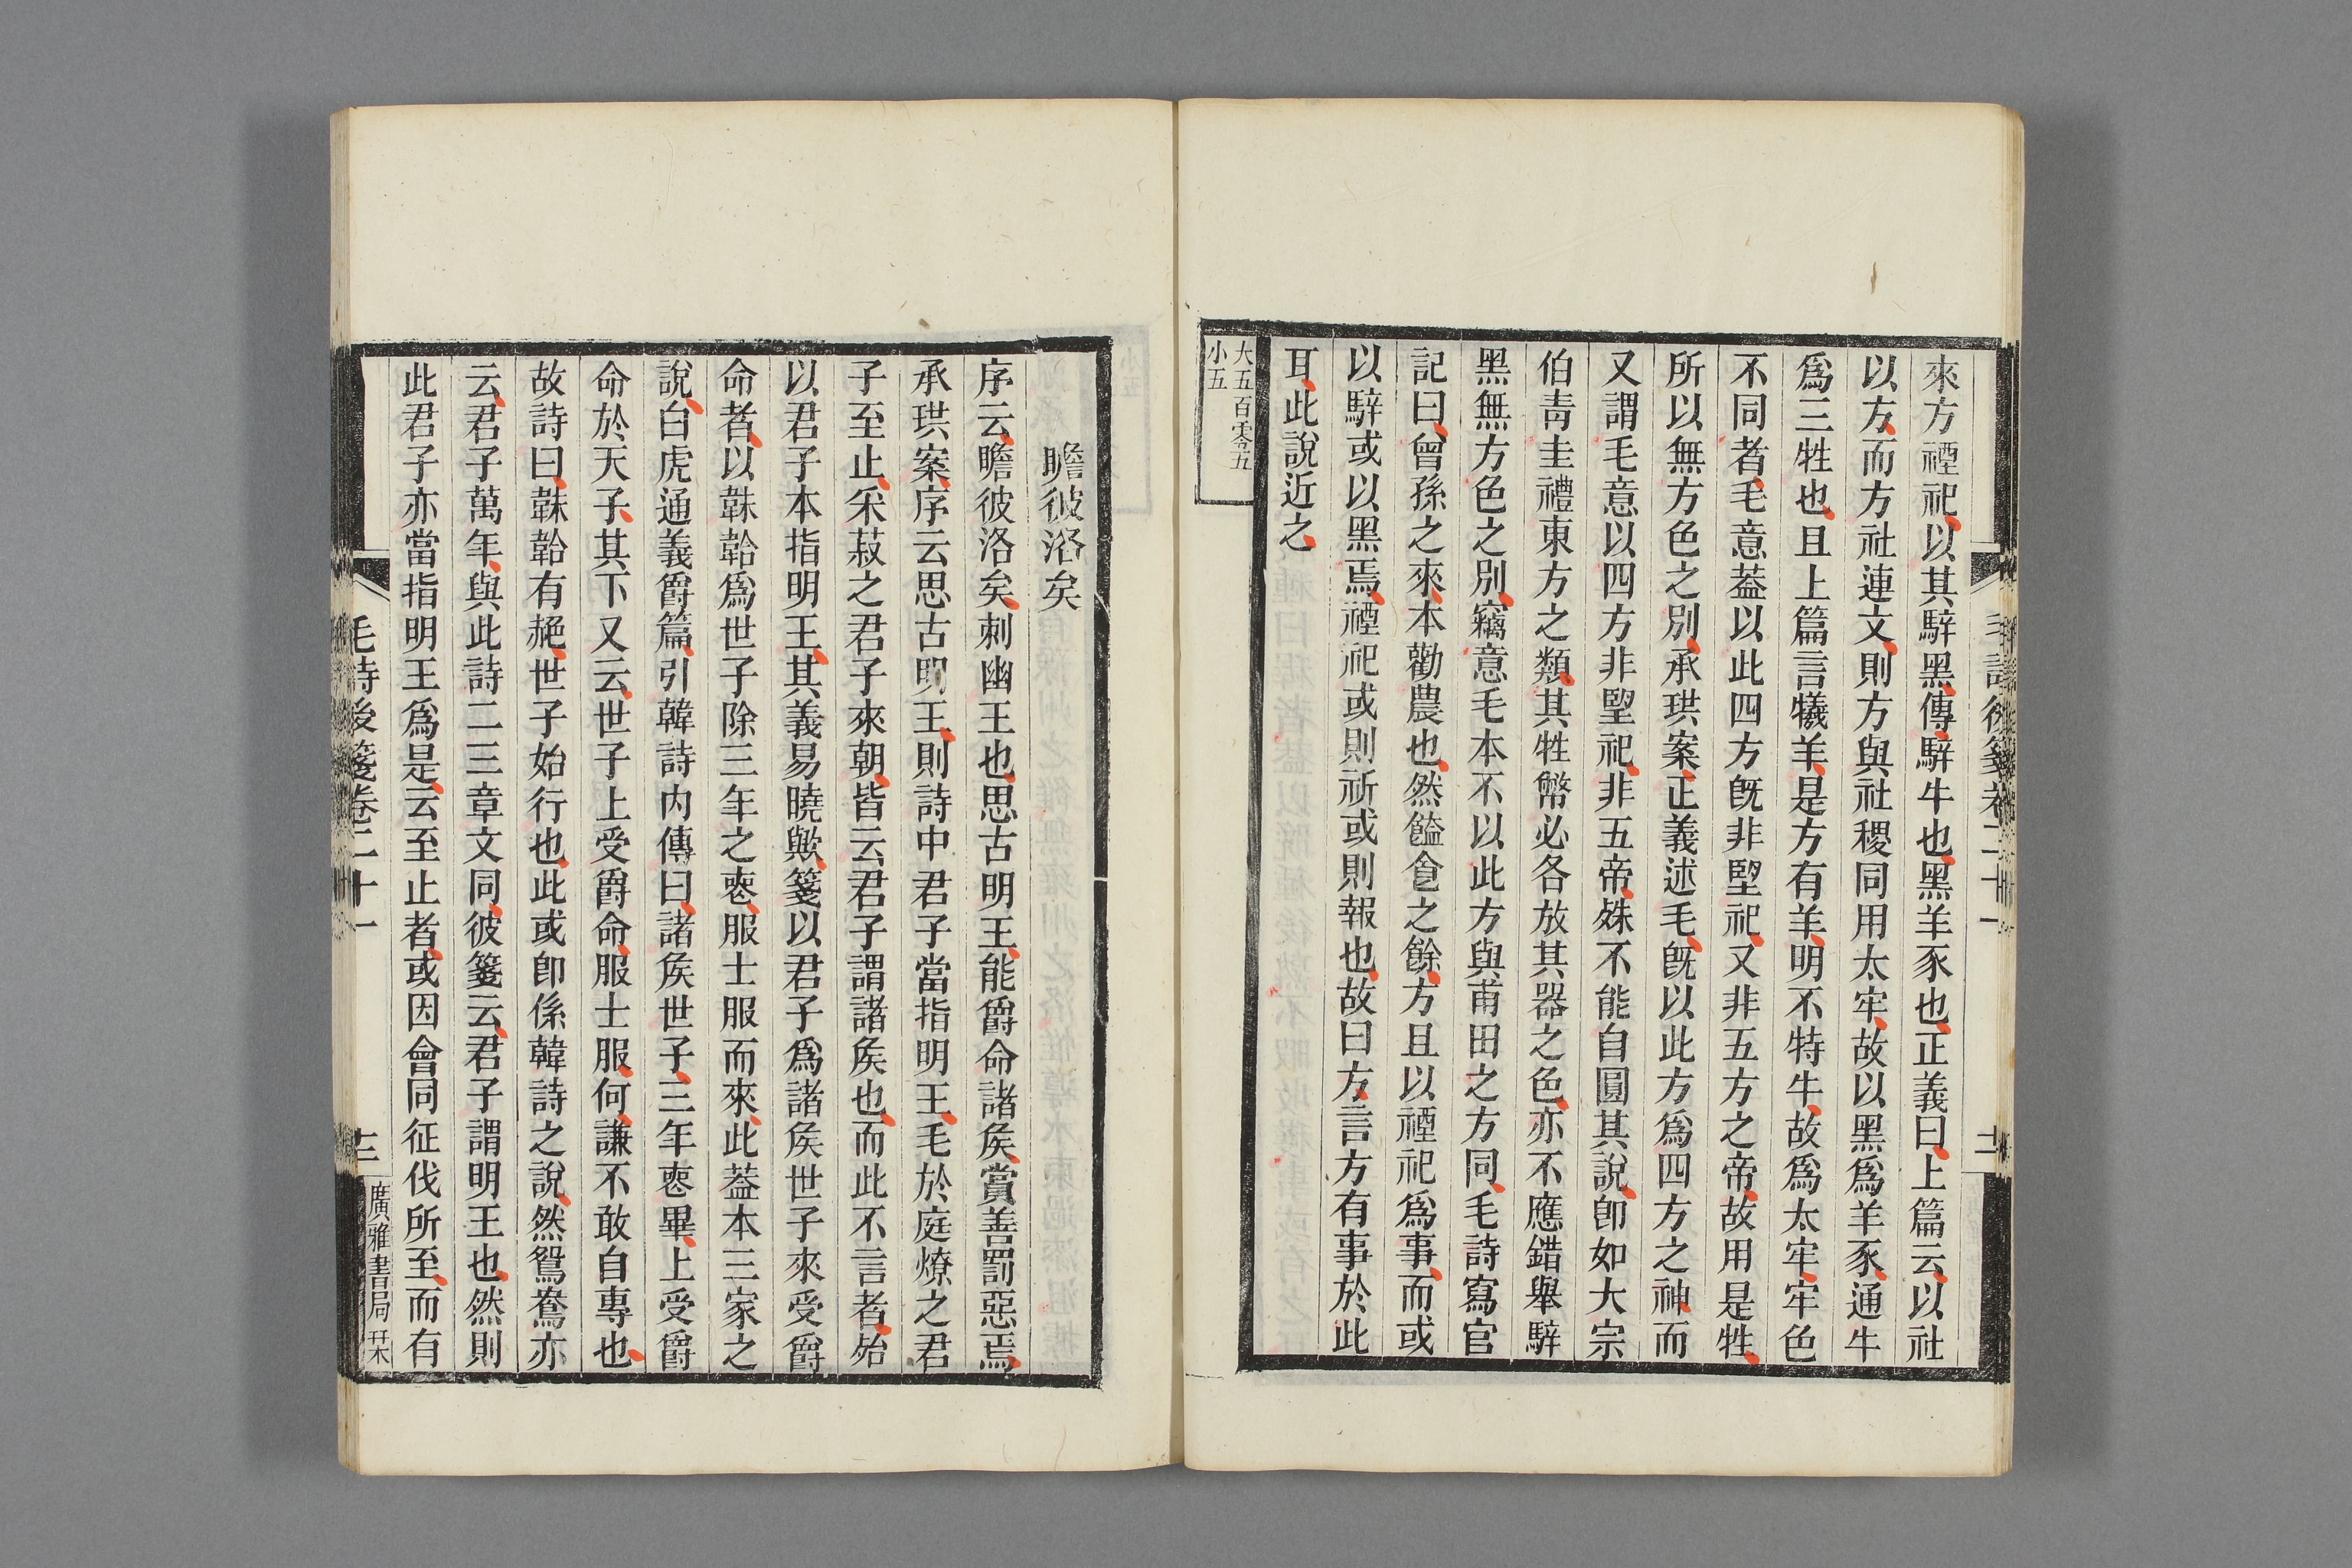 毛詩後箋卷二十一
十二
來方禋祀以其騂黑傳騂牛也黑羊豕也正義曰上篇云以社
以方而方社連文則方與社稷同用太牢故以黑爲羊豕通牛
爲三牲也且上篇言犧羊是方有羊明不特牛故爲太牢牢色
不同者毛意葢以此四方旣非朢祀又非五方之帝故用是牲
所以無方色之別承珙案正義述毛旣以此方爲四方之神而
又謂毛意以四方非朢祀非五帝殊不能自圓其說卽如大宗
伯靑圭禮東方之類其牲幣必各放其器之色亦不應錯舉騂
黑無方色之別竊意毛本不以此方與甫田之方同毛詩寫官
記曰曾孫之來本勸農也然饁食之餘方且以禋祀爲事而或
以騂或以黑焉禋祀或則祈或則報也故曰方言方有事於此
耳此說近之
大五百零五
小五
瞻彼洛矣
序云瞻彼洛矣刺幽王也思古明王能爵命諸矦賞善罰惡焉
承珙案序云思古明王則詩中君子當指明王毛於庭燎之君
子至止采菽之君子來朝皆云君子謂諸矦也而此不言者殆
以君子本指明王其義易曉歟箋以君子爲諸矦世子來受爵
命者以韎韐爲世子除三年之喪服士服而來此葢本三家之
說白虎通義爵篇引韓詩內傳曰諸矦世子三年喪畢上受爵
命於天子其下又云世子上受爵命服士服何謙不敢自專也
故詩曰韎韐有赩世子始行也此或卽係韓詩之說然鴛鴦亦
云君子萬年與此詩二三章文同彼箋云君子謂明王也然則
此君子亦當指明王爲是云至止者或因會同征伐所至而有
毛詩後箋卷二十一
十二
廣雅書局栞